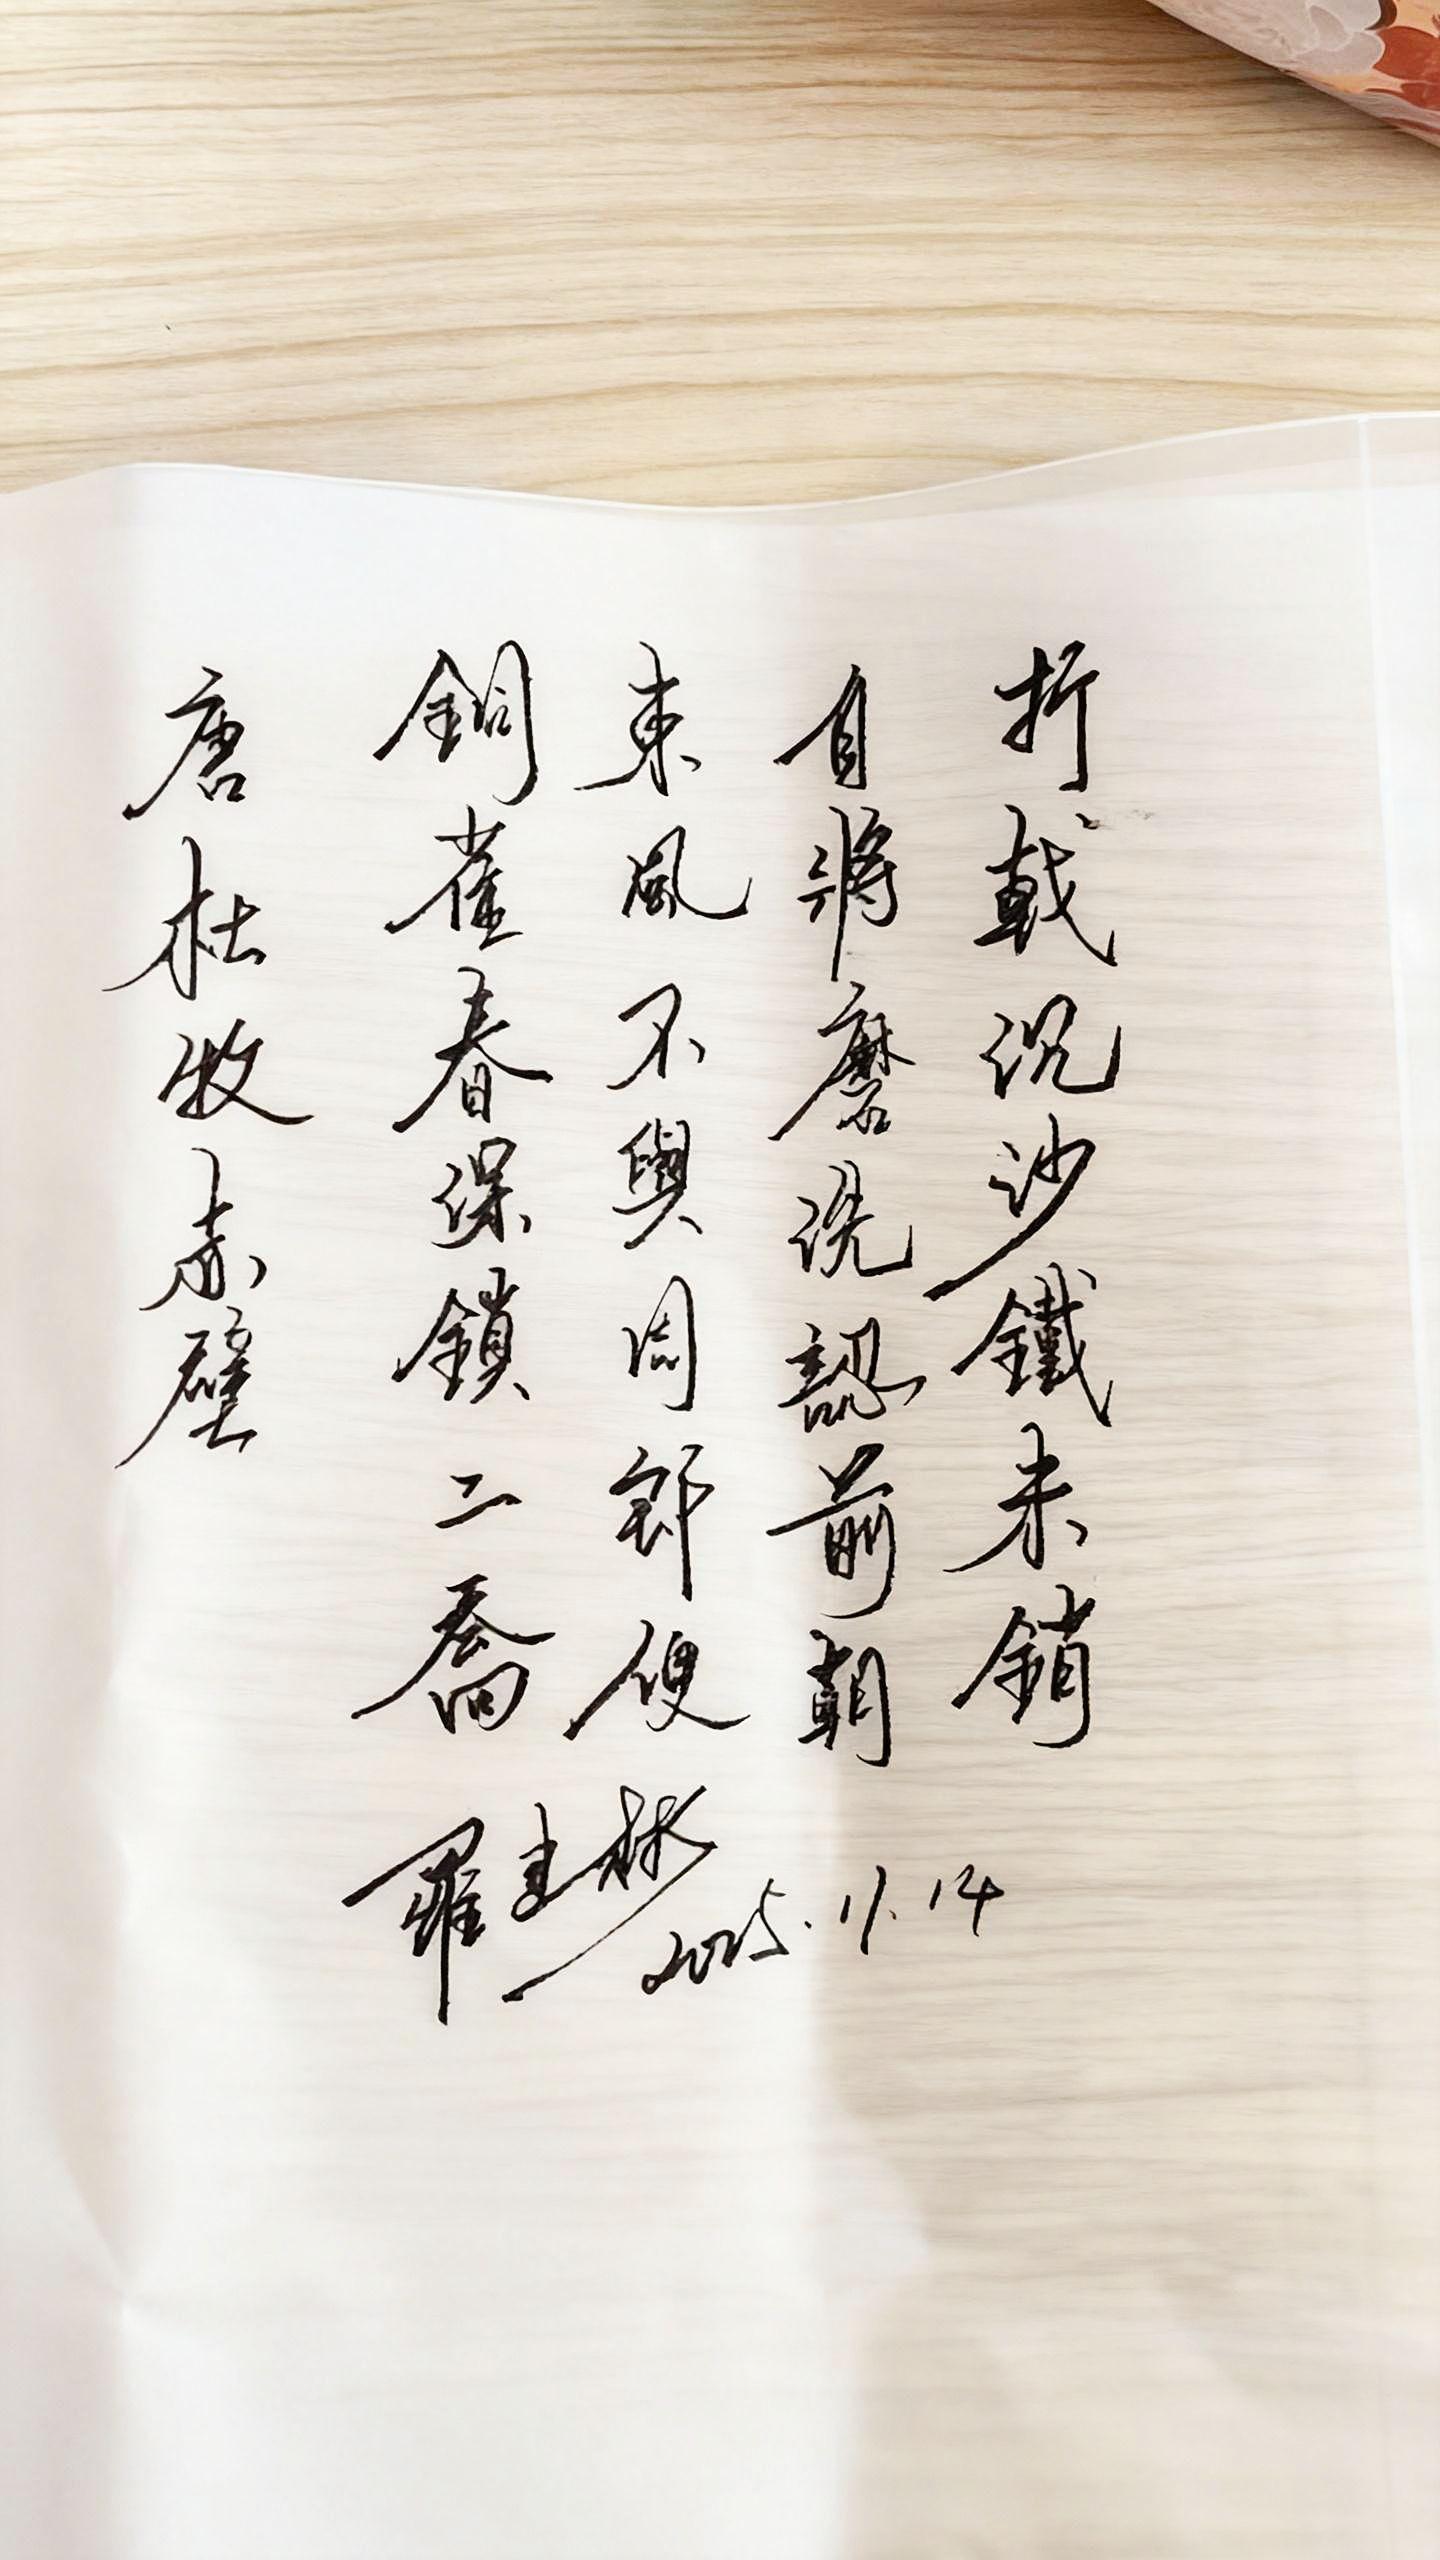 折戟沉沙鐵未銷
自將磨洗認前朝
東風不與周郎便
銅雀春深鎖二喬
唐杜牧赤壁
羅建彬
2025.11.14